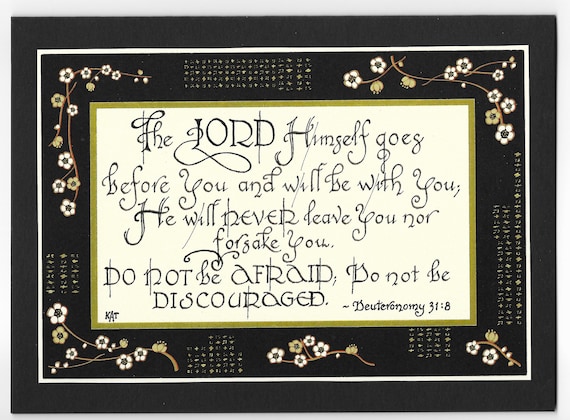 The LORD Himself goes
before You and will be with You;
He will NEVER leave You nor
forsake You.
DO NOT be AFRAID; Do not be
DISCOURAGED.
~ Deuteronomy 31:8
KAT